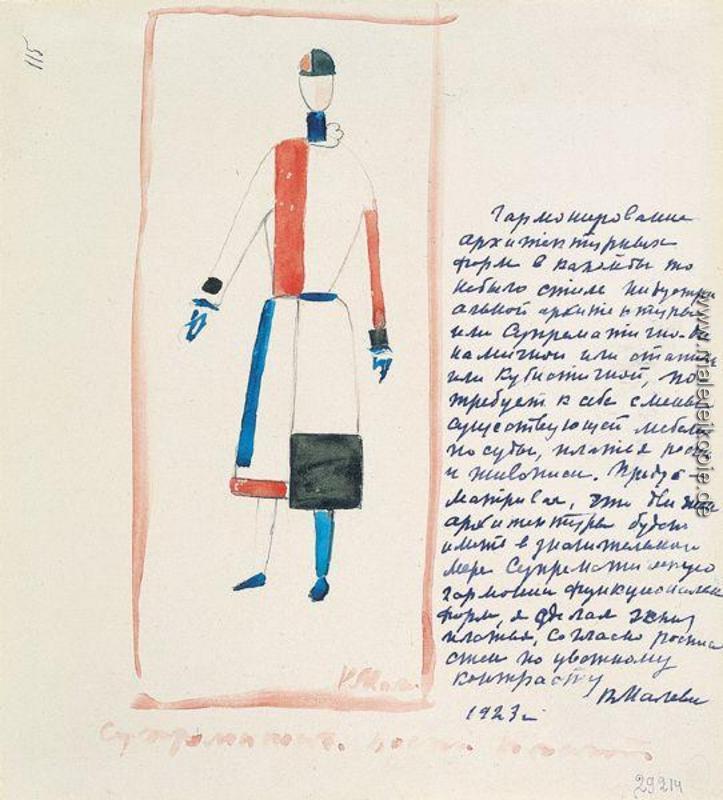 115
Гармонирование
архитектурных
форм в какой бы то
небыло стиле индустри
альной архитектуры
или Супрематично-ди
намичной или статич
или Кубистичной, по
требует к себе смены
существующей мебели
посуды, платья роспи
и живописи. Предус-
матривая, что движен
архитектуры будет
иметь в значительной
мере Супрематическую
гармонию функциональн
форм, я сделал эскиз
платья, согласно росписи
стен по цветному
контрасту
К Малеви
1923 г
К Мал.
29214
www.malereikopie.de